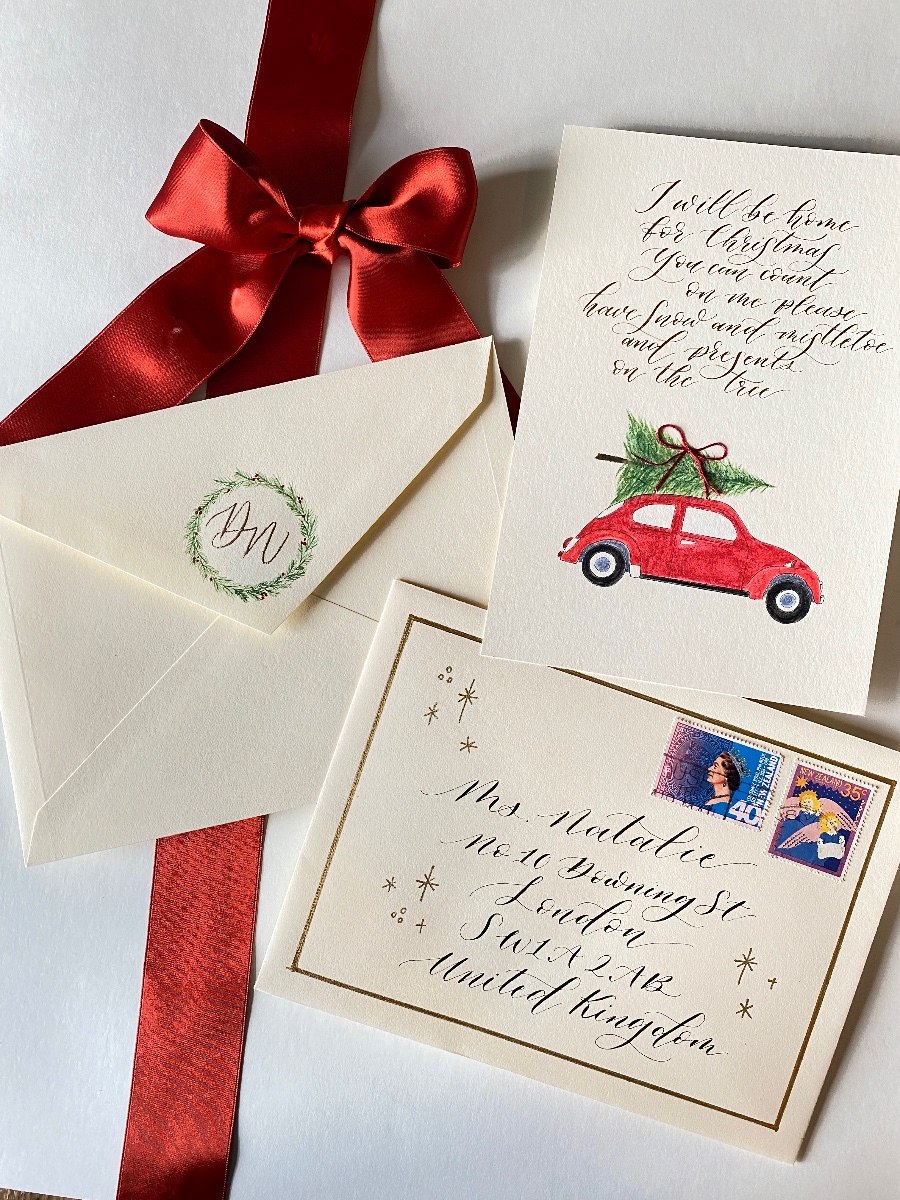 I will be home
for Christmas
You can count
on me please
have snow and mistletoe
and presents
on the tree
DN
NEW ZEALAND
40
NEW ZEALAND 35c
Ms. Natalie
No 10 Downing St
London
SW1A 2AB
United Kingdom